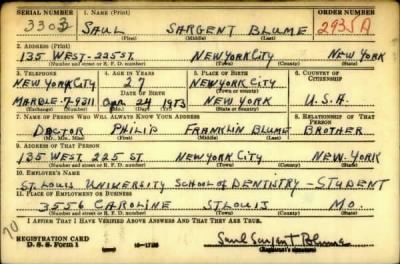 SERIAL NUMBER 1. NAME (Print) ORDER NUMBER
3303 SAUL SARGENT BLUME 2935A
(First) (Middle) (Last)
2. ADDRESS (Print)
135 WEST - 225 ST. NEW YORK CITY NEW YORK
(Number and street or R. F. D. number) (Town) (County) (State)
3. TELEPHONE 4. AGE IN YEARS 5. PLACE OF BIRTH 6. COUNTRY OF CITIZENSHIP
NEW YORK CITY 27 NEW YORK CITY
DATE OF BIRTH (Town or county)
MARBLE-7-9211 Apr 24 1913 NEW YORK U.S.A.
(Exchange) (Number) (Mo.) (Day) (Yr.) (State or country)
7. NAME OF PERSON WHO WILL ALWAYS KNOW YOUR ADDRESS 8. RELATIONSHIP OF THAT PERSON
DOCTOR PHILIP FRANKLIN BLUME BROTHER
(Mr., Mrs., Miss) (First) (Middle) (Last)
9. ADDRESS OF THAT PERSON
135 WEST 225 ST NEW YORK CITY NEW-YORK
(Number and street or R. F. D. number) (Town) (County) (State)
10. EMPLOYER'S NAME
ST. LOUIS UNIVERCITY SCHOOL OF DENTISTRY - STUDENT
11. PLACE OF EMPLOYMENT OR BUSINESS
3556 CAROLINE ST LOUIS MO.
(Number and street or R. F. D. number) (Town) (County) (State)
I AFFIRM THAT I HAVE VERIFIED ABOVE ANSWERS AND THAT THEY ARE TRUE.
REGISTRATION CARD
D. S. S. Form 1 Saul Sargent Blume
(Registrant's signature)